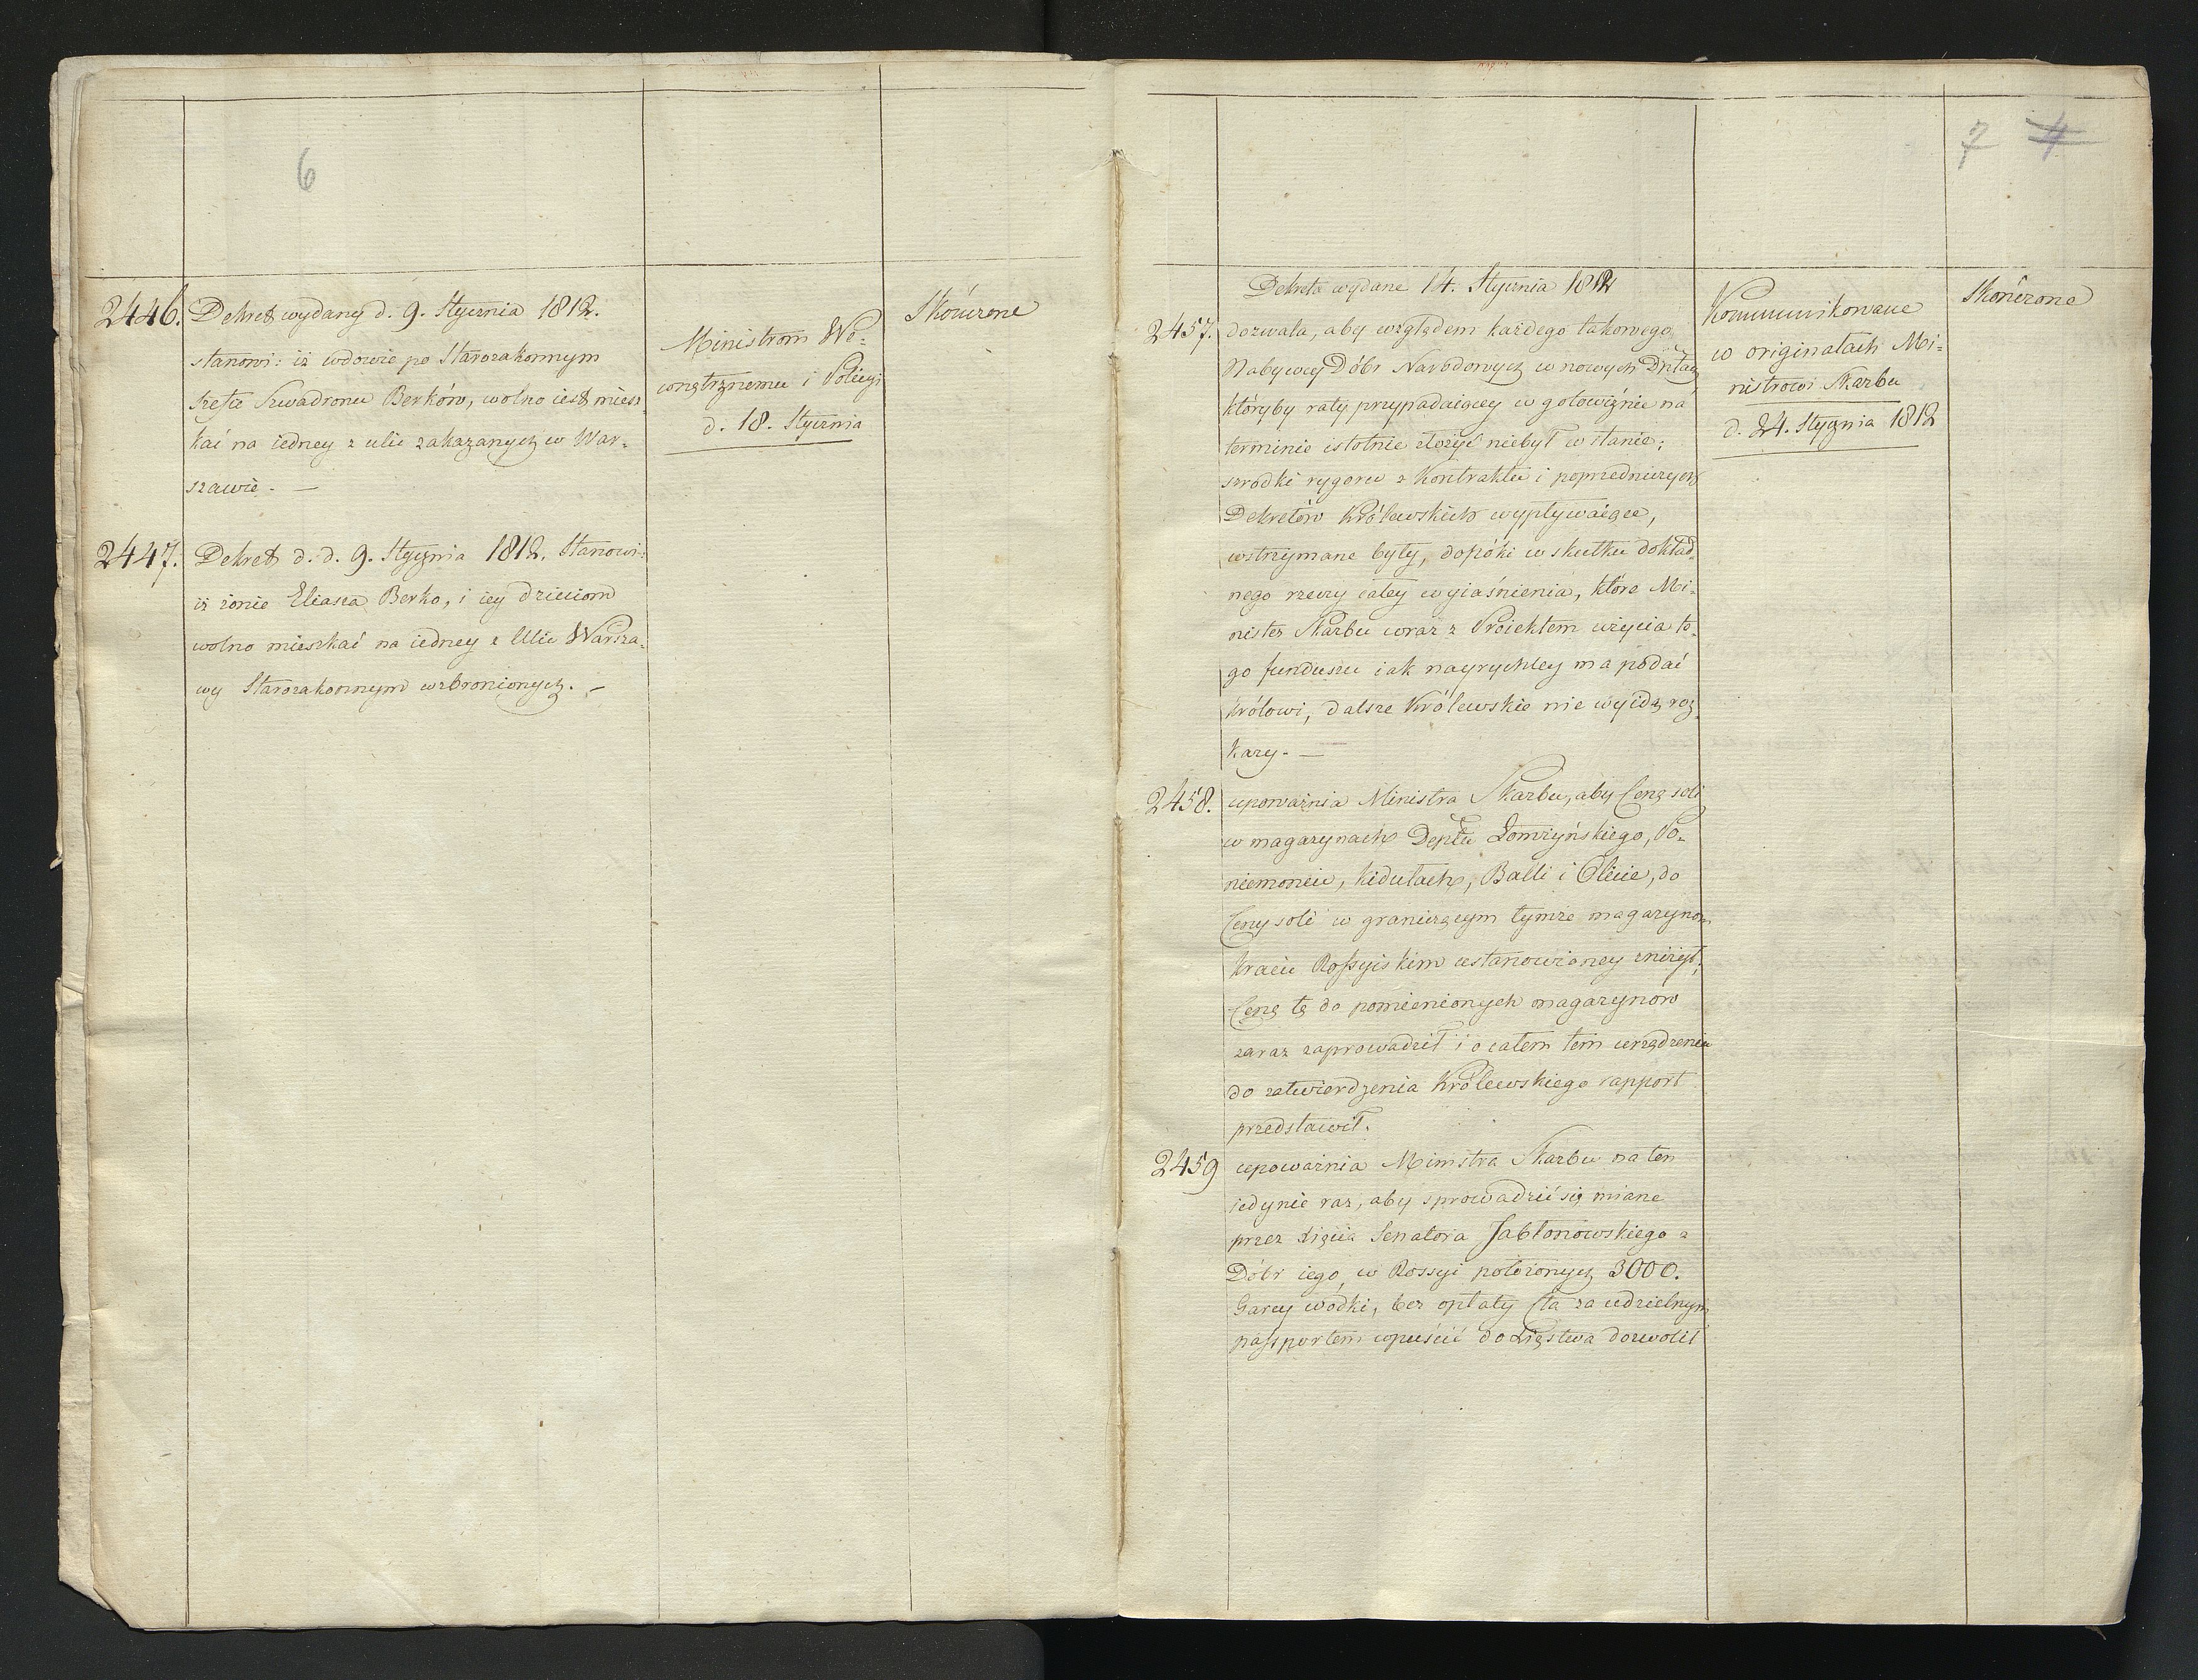 6
2446. Dekret wydany d. 9. Stycznia 1812.
stanowi: iż wdowie po Starozakonnym
szefie Szwadronu Berków, wolno iest miesz-
kać na iedney z ulic zakazanych w War-
szawie. —
Ministrom We-
wnętrznemu i Policyi
d. 18. Stycznia
Skończone
2447. Dekret d. d. 9. Stycznia 1812. Stanowi:
iż żonie Eliasza Berko, i iey dzieciom
wolno mieszkać na iedney z Ulic Warsza-
wy Starozakonnym wzbronionych. —
7 4
Dekreta wydane 14. Stycznia 1812
2457. dozwala, aby względem każdego takowego
Nabywcy Dóbr Narodowych w nowych
któryby raty przypadaiącey w gotowiźnie na
terminie istotnie złożyć niebył w stanie;
szrodki rygoru z Kontraktu i poprzedniczych
Dekretów Królewskich wypływaiące,
wstrzymane były, dopóki w skutku dokład-
nego rzeczy całey wyiaśnienia, które Mi-
nister Skarbu wraz z Proiektem użycia te-
go funduszu iak nayrychley ma podać
Królowi, dalsze Królewskie nie wyidą roz-
kazy. —
Kommunikowane
w originałach Mi-
nistrowi Skarbu
d. 24. Stycznia 1812
Skończone
2458. upoważnia Ministra Skarbu, aby Cenę soli
w magazynach Deptu Łomżyńskiego, Po-
niemoniu, Kidułach, Balli i Olicie, do
Ceny soli w graniczącym tymże magazynom
Kraiu Rossyiskim ustanowioney zniżył;
Cenę tę do pomienionych magazynów
zaraz zaprowadził i o całem tem urządzeniu
do zatwierdzenia Królewskiego rapport
przedstawił.
2459 upoważnia Ministra Skarbu na ten
iedynie raz, aby sprowadzić się miane
przez Xięcia Senatora Jabłonowskiego z
Dóbr iego w Rossyi położonych 3000.
Garcy wódki, bez opłaty Cła za udzielnym
passportem wpuścić do Xięstwa dozwolił